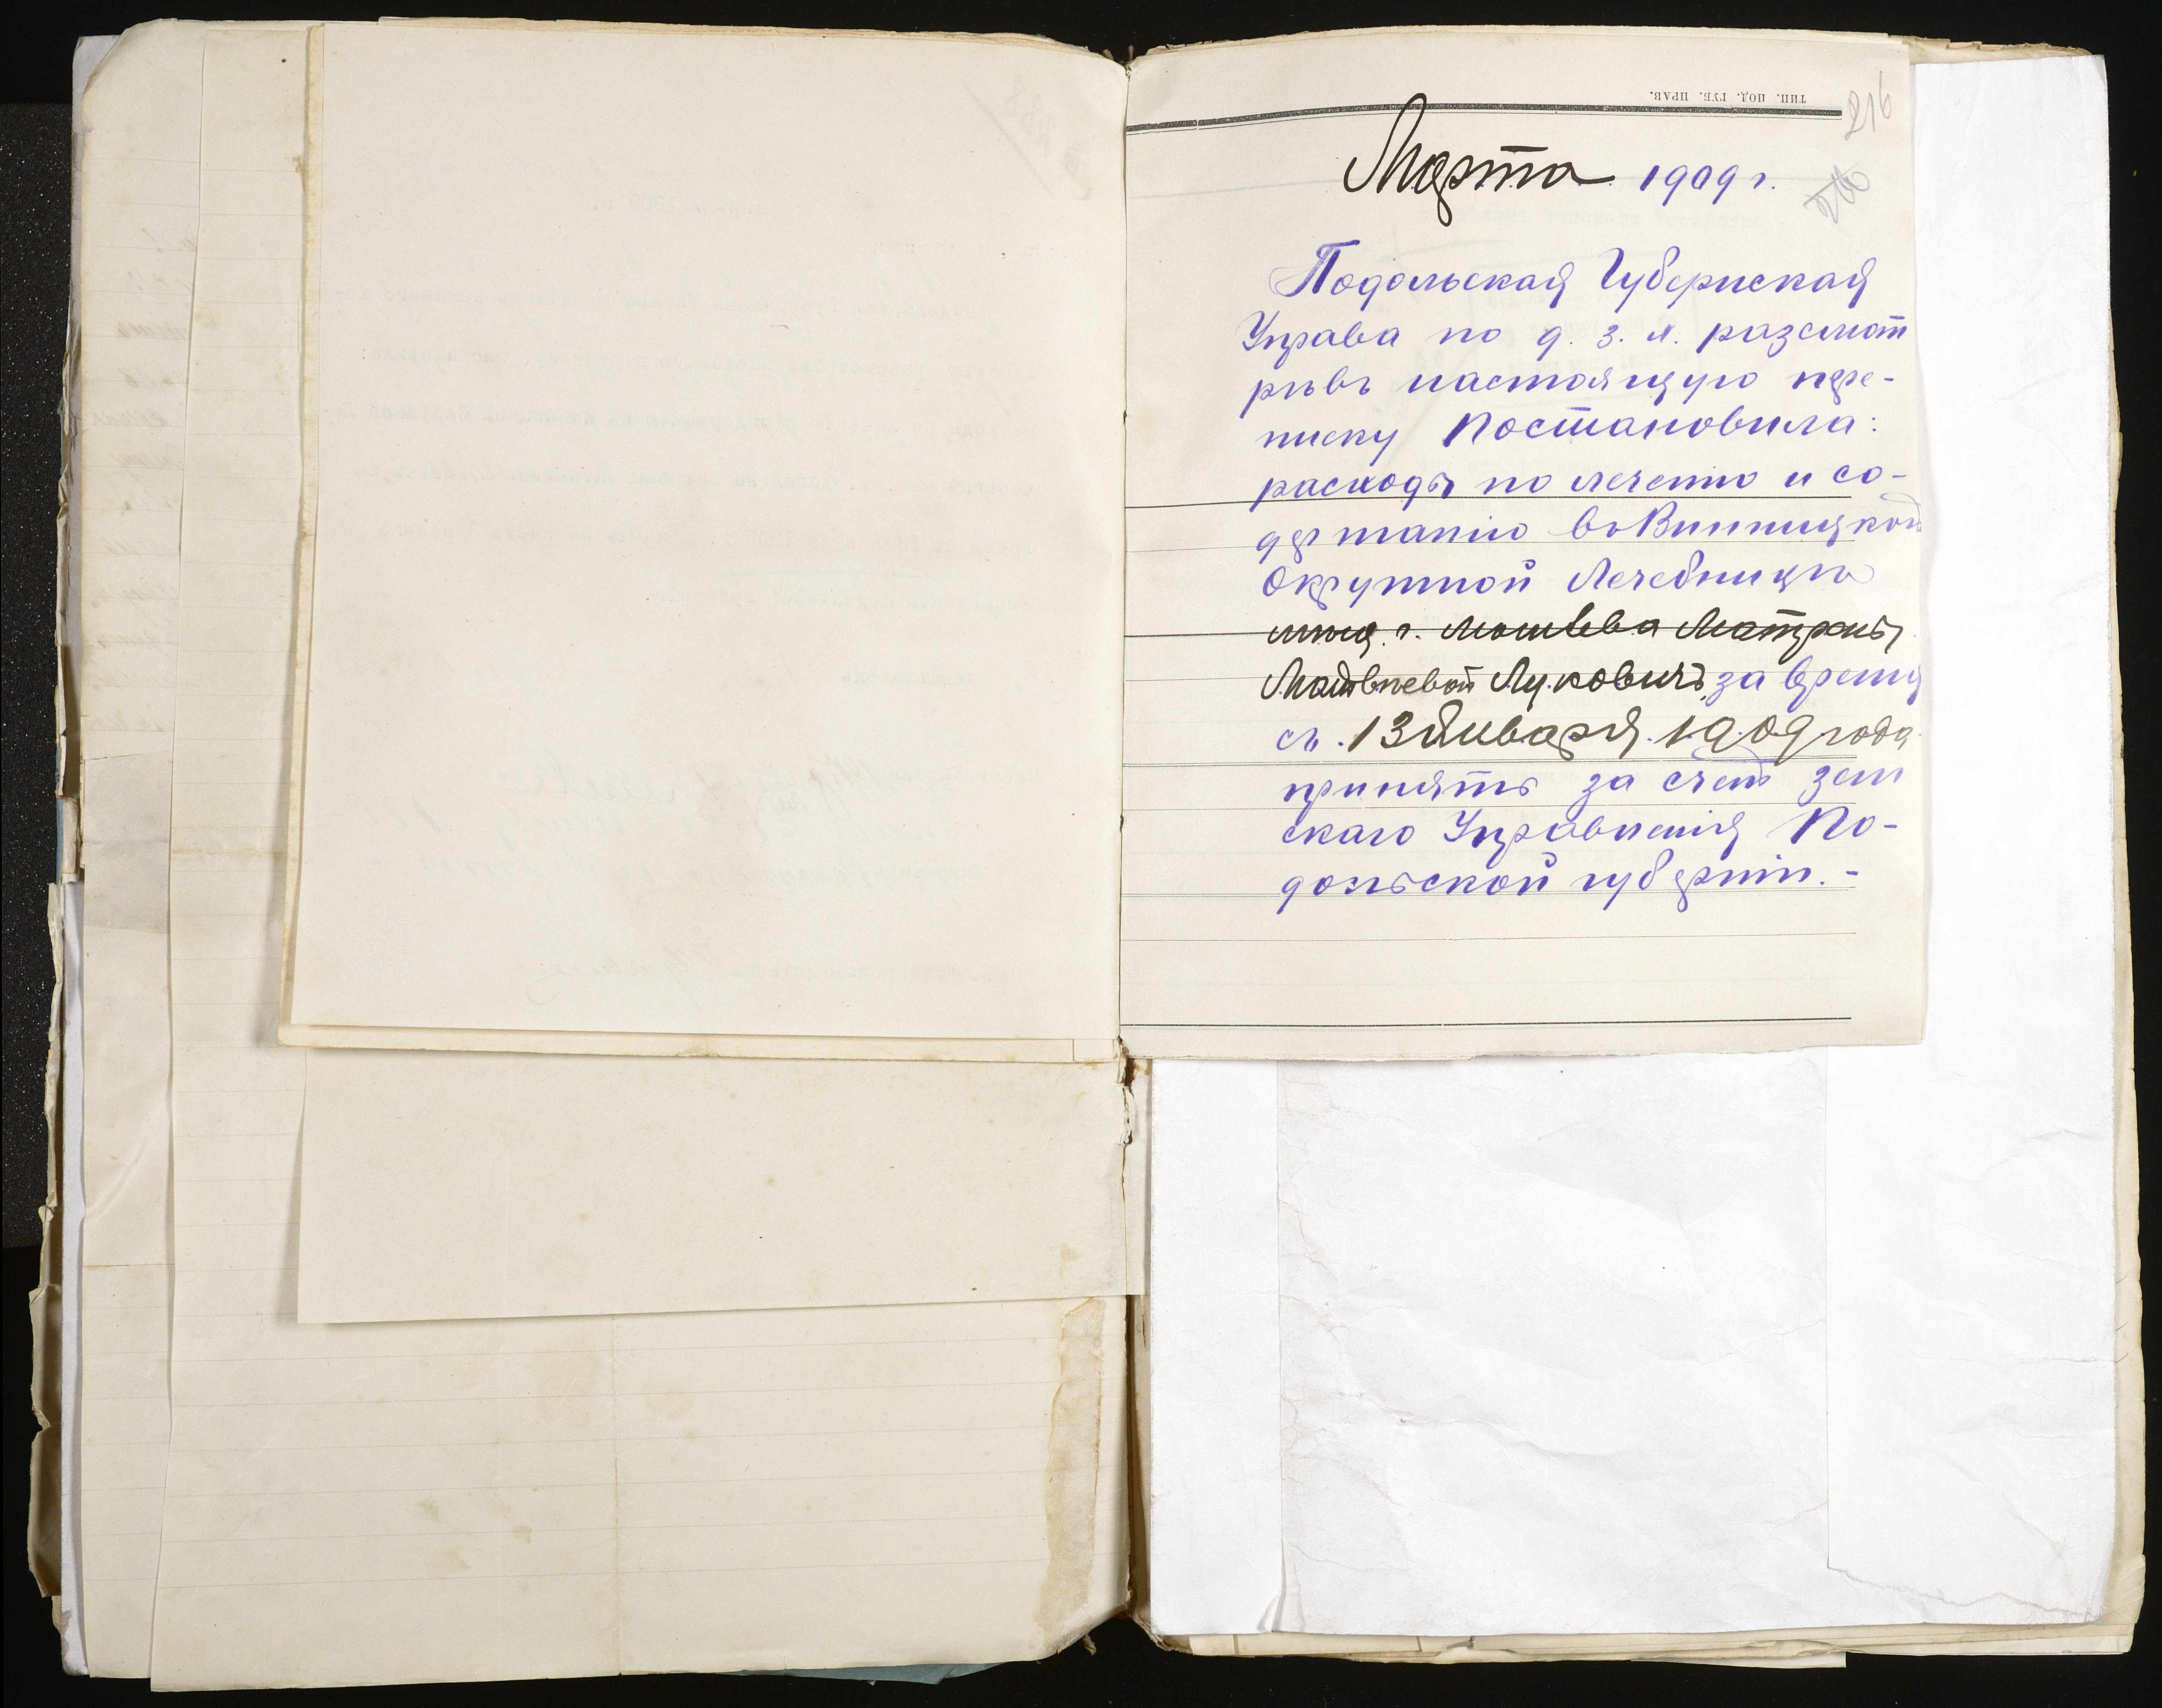 ТИП. ПОД. ГУБ. ПРАВ.
216
Марта 1909 г.
Подольская Губернская
Управа по д. з. х. разсмот
рѣвъ настоящую пере-
писку Постановила:
расходы по леченію и со-
держанію въ Винницкой
Окружной Лечебницѣ
мѣщ. г. Могилева Матроны
Матвѣевой Лукович, за время
съ 13 Января 1909 года
принять за счетъ зем
скаго Управленія По-
дольской губерніи.-